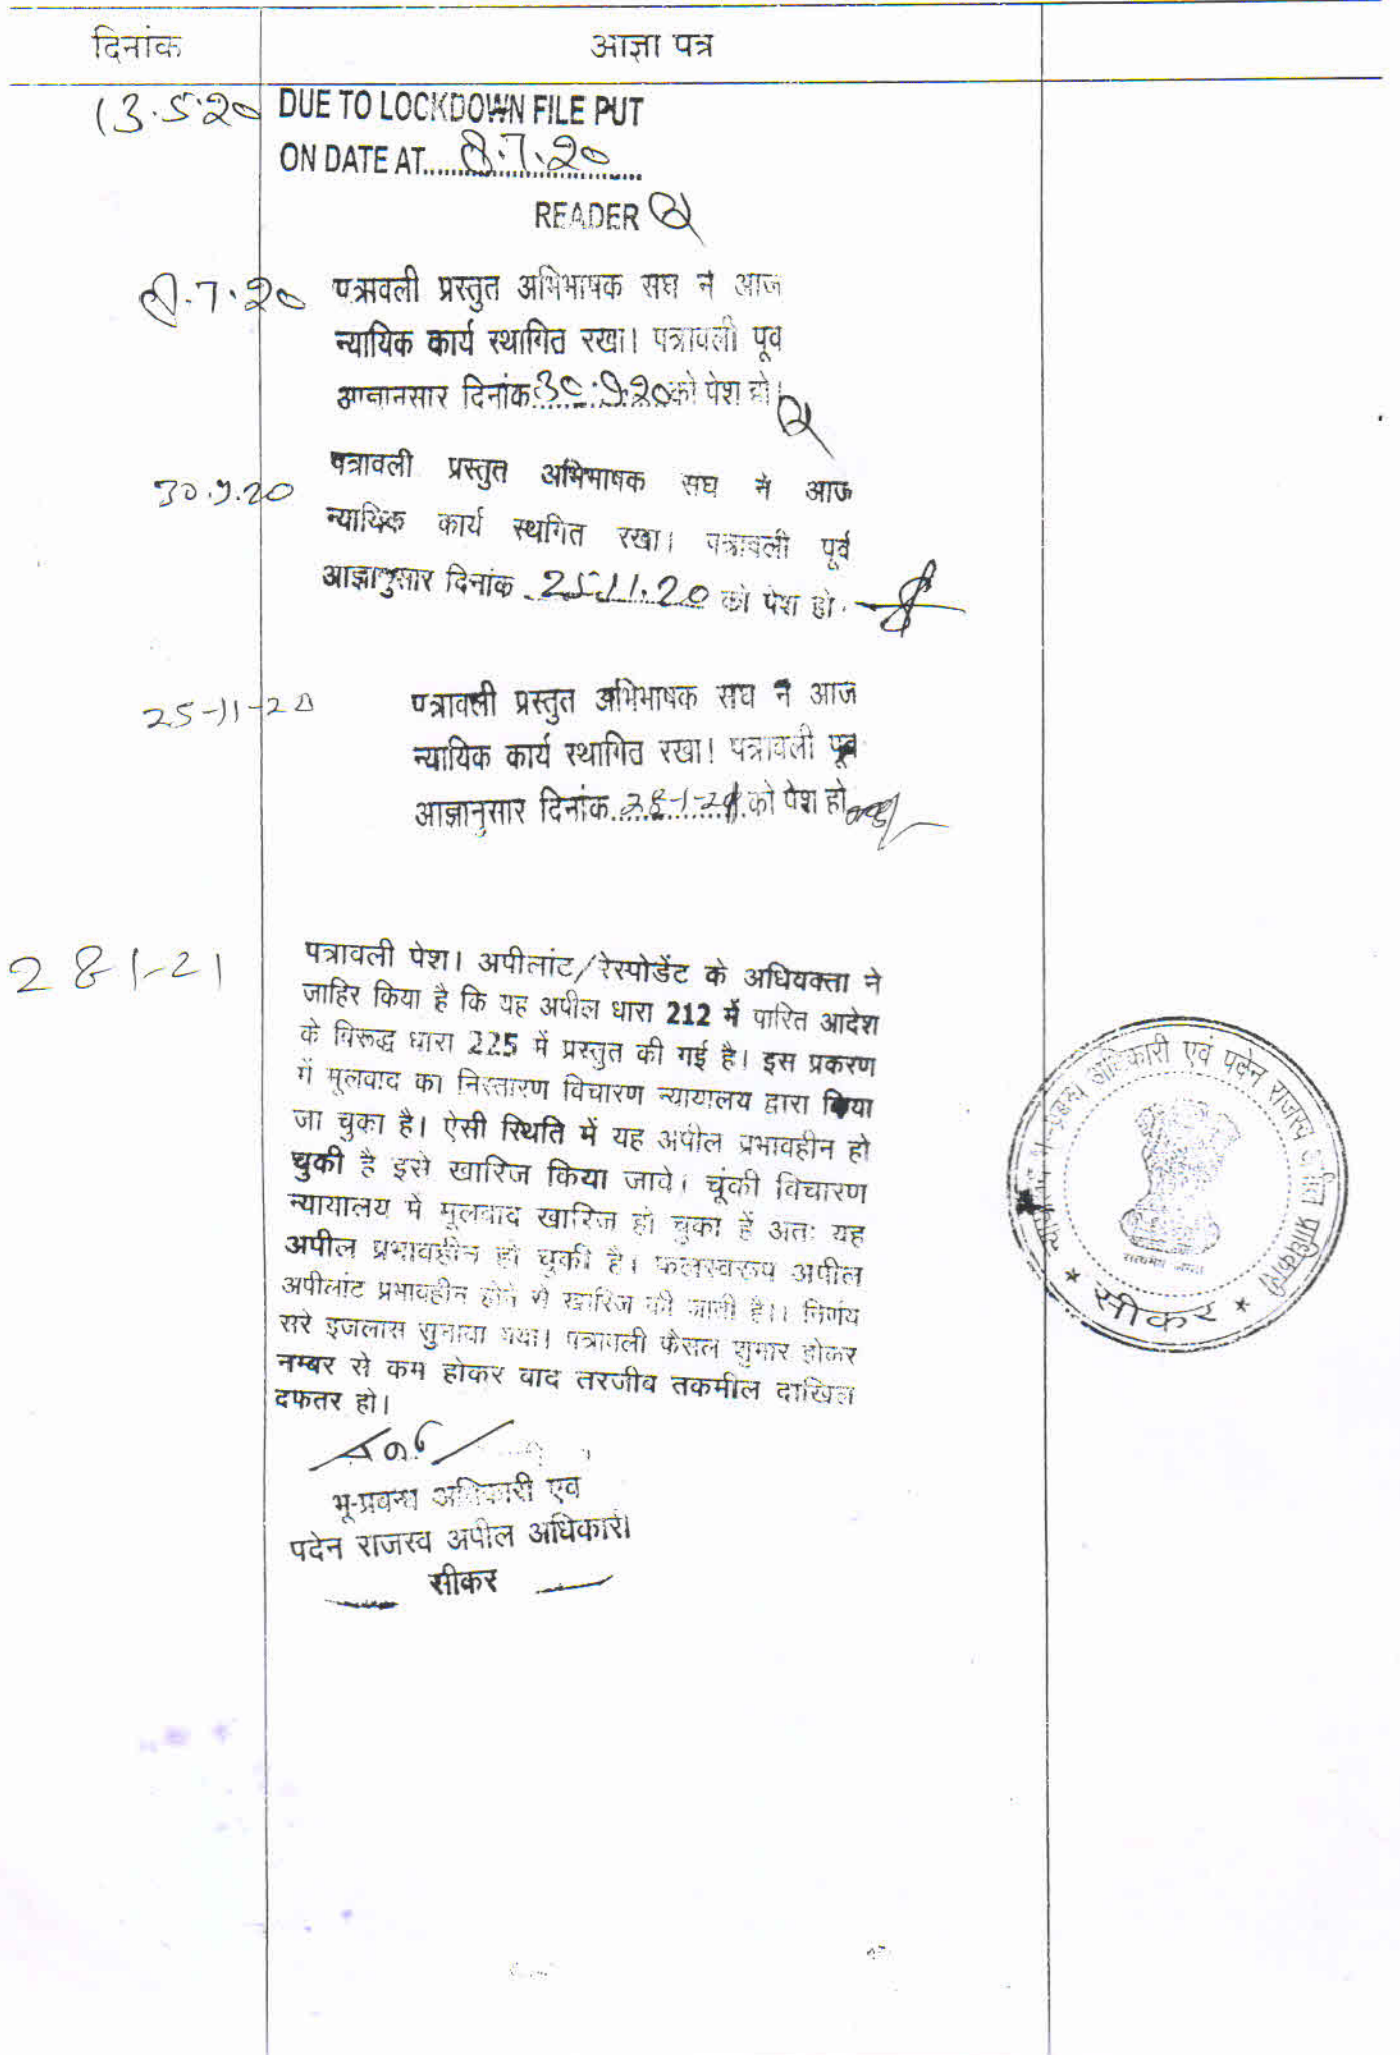 दिनांक
आज्ञा पत्र
13.5.20
DUE TO LOCKDOWN FILE PUT
ON DATE AT 8.7.20
READER
8.7.20
पत्रावली प्रस्तुत अभिभाषक संघ ने आज
न्यायिक कार्य स्थागित रखा। पत्रावली पूव
आज्ञानसार दिनांक 30.9.20 को पेश हो।
30.9.20
पत्रावली प्रस्तुत अभिभाषक संघ ने आज
न्यायिक कार्य स्थगित रखा। पत्रावली पूर्व
आज्ञानुसार दिनांक 25.11.20 को पेश हो।
25-11-20
पत्रावली प्रस्तुत अभिभाषक संघ ने आज
न्यायिक कार्य स्थागित रखा। पत्रावली पूव
आज्ञानुसार दिनांक 28-1-21 को पेश हो
28 1-21
पत्रावली पेश। अपीलांट/रेस्पोडेंट के अधियक्ता ने
जाहिर किया है कि यह अपील धारा 212 में पारित आदेश
के विरूद्ध धारा 225 में प्रस्तुत की गई है। इस प्रकरण
में मूलवाद का निस्तारण विचारण न्यायालय द्वारा किया
जा चुका है। ऐसी स्थिति में यह अपील प्रभावहीन हो
चुकी है इसे खारिज किया जावे। चूंकी विचारण
न्यायालय में मूलवाद खारिज हो चुका हैं अतः यह
अपील प्रभावहीन हो चुकी है। फलस्वरूप अपील
अपीलांट प्रभावहीन होने से खारिज की जाती है।। निर्णय
सरे इजलास सुनाया गया। पत्रावली फैसल शुमार होकर
नम्बर से कम होकर बाद तरजीब तकमील दाखिल
दफतर हो।
भू-प्रबन्ध अधिकारी एव
पदेन राजस्व अपील अधिकारी
सीकर
भू-प्रबन्ध अधिकारी एवं पदेन राजस्व अपील अधिकारी
सत्यमेव जयते
★ सीकर ★